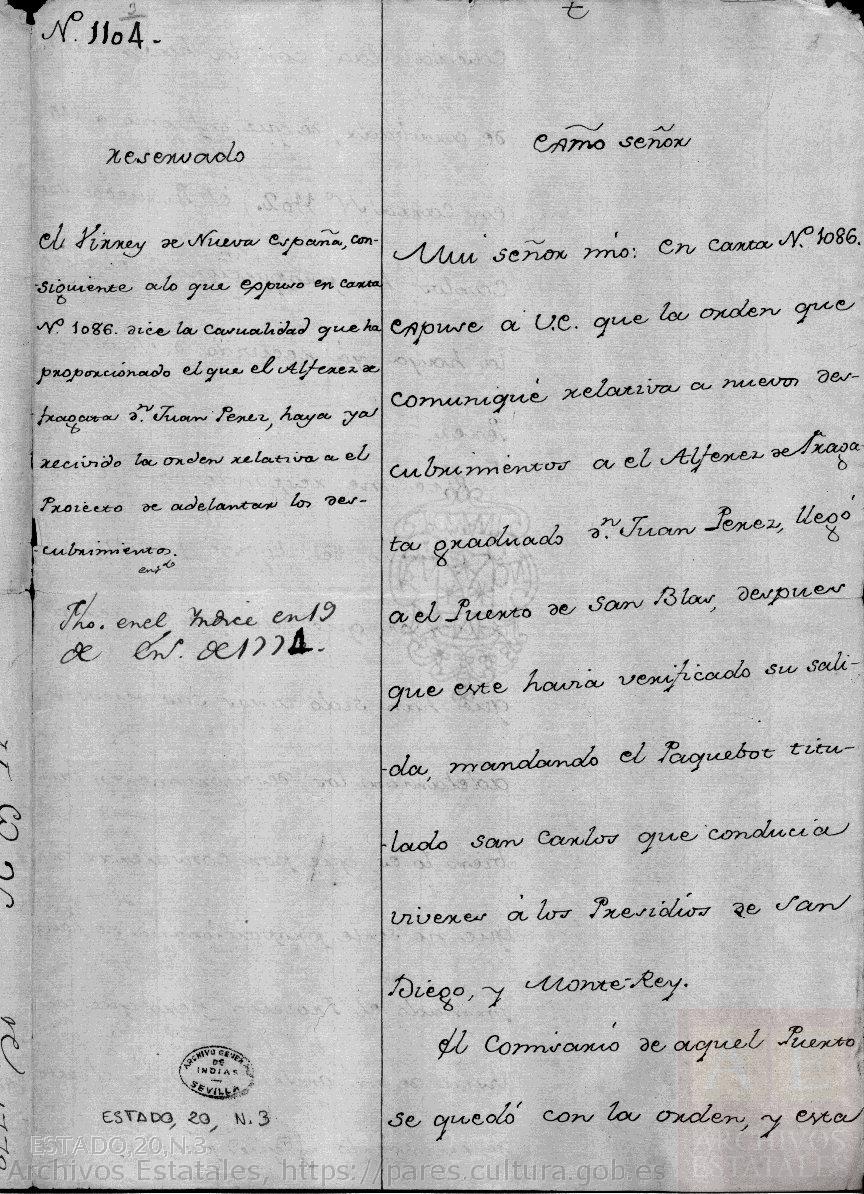 N. 1104.
Reservado
El Virrey de Nueva España, con-
siguiente a lo que expuso en carta
Nº 1086. dice la casualidad que ha
proporcionado el que el Alferez de
fragata dn. Juan Perez, haya ya
recivido la orden relativa a el
Proiecto de adelantar los des-
cubrimientos.
Fho. en el Yndice en 19
de En.º de 1774.
ARCHIVO GENERAL
DE
INDIAS
SEVILLA
ESTADO, 20, N.3
Exmo Señor
Mui señor mio: En carta Nº. 1086.
expuse a V.E. que la orden que
comuniqué relativa a nuevos des-
cubrimientos a el Alferez de Fraga-
ta graduado dn. Juan Perez, llegó
a el Puerto de San Blas, despues
que este havia verificado su sali-
da, mandando el Paquebot titu-
lado San Carlos que conducia
viveres á los Presidios de San
Diego, y Monte-Rey.
El Comisario de aquel Puerto
se quedó con la orden, y esta
ESTADO,20,N.3
Archivos Estatales, https://pares.cultura.gob.es
ARCHIVOS
ESTATALES